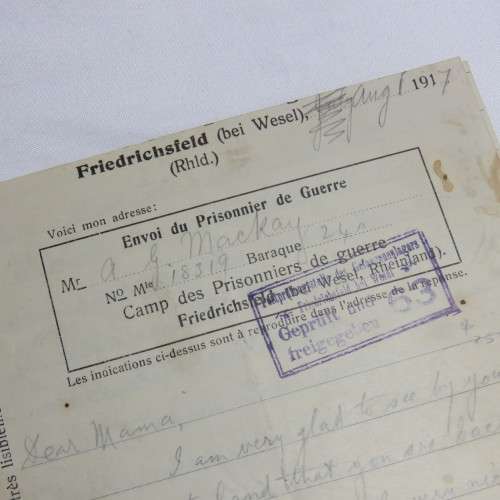 Friedrichsfeld (bei Wesel), Aug 1 1917
(Rhld.)
Voici mon adresse:
Envoi du Prisonnier de Guerre
Mr A G Mackay
No Mle 18319 Baraque 24a
Camp des Prisonniers de guerre
Friedrichsfeld (bei Wesel, Rheinland).
Les indications ci-dessus sont à reproduire dans l'adresse de la réponse.
Geprüft und
freigegeben
53
très lisiblement
Dear Mama,
I am very glad to see by your
hand that you are